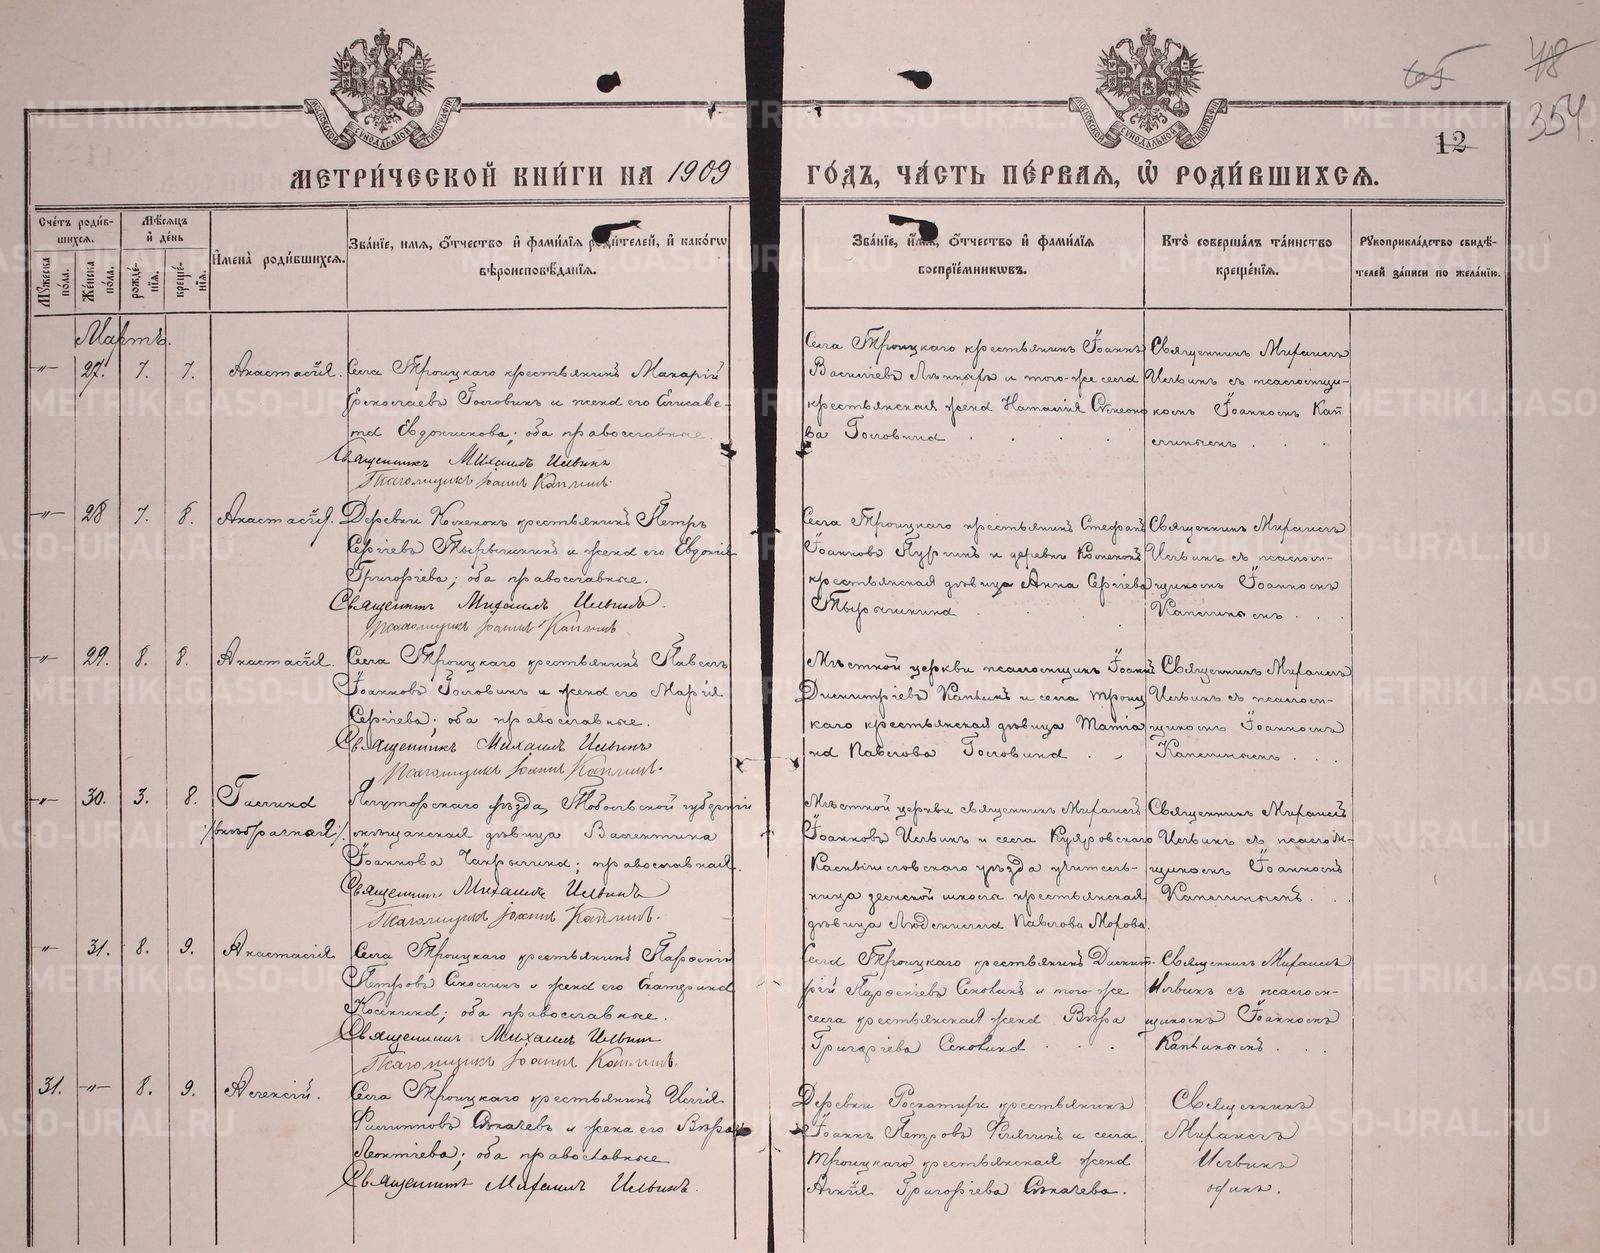 48
354
12
МОСКОВСКОЙ СУНОДАЛЬНОЙ ТИПОГРАФІИ
МОСКОВСКОЙ СУНОДАЛЬНОЙ ТИПОГРАФІИ
МЕТРИ́ЧЕСКОЙ КНИ́ГИ НА 1909
ГО́ДЪ, ЧА́СТЬ ПЕ́РВАЯ, Ѡ҆ РОДИ́ВШИХСЯ.
Сче́тъ роди́в-
шихся.
Мꙋжеска по́ла.
Же́нска по́ла.
Мѣ́сяцъ
и҆ де́нь
рожде́-
нїя.
креще́-
нїя.
И҆мена̀ роди́вшихся.
Зва́нїе, имя, ѻ҆́тчество и҆ фами́лїя роди́телей, и҆ како́гѡ
вѣроисповѣ́данїя.
Зва́нїе, и҆́мя, ѻ҆́тчество и҆ фами́лїя
воспрїе́мникѡвъ.
Кто̀ соверша́лъ та́инство
креще́нїя.
Рꙋкоприкла́дство свидѣ́-
телей за́писи по жела́нїю.
Мартъ.
-"- 27. 7. 7. Анастасія. Села Троицкаго крестьянинъ Макарій
Головинъ и жена его Елисаве-
та Евдокимова; оба православные.
Священникъ Михаилъ Ильинъ
Псаломщикъ Іоаннъ Каплинъ.
Села Троицкаго крестьянинъ Іоаннъ
Васильевъ и того-же села
крестьянская жена Наталія Симеоно
ва Головина
Священникъ Михаилъ
Ильинъ съ псаломщи-
комъ Іоанномъ Кап
линымъ
-"- 28 7. 8. Анастасія. Деревни крестьянинъ Петръ
Сергіевъ Тырышкинъ и жена его Евдокія
Григоріева; оба православные.
Священникъ Михаилъ Ильинъ.
Псаломщикъ Іоаннъ Каплинъ
Села Троицкаго крестьянинъ Стефанъ
Іоанновъ и деревни
крестьянская дѣвица Анна Сергіева
Тырышкина
Священникъ Михаилъ
Ильинъ съ псалом-
щикомъ Іоанномъ
Каплинымъ
-"- 29. 8. 8. Анастасія. Села Троицкаго крестьянинъ Павелъ
Іоанновъ Головинъ и жена его Марія
Сергіева; оба православные.
Священникъ Михаилъ Ильинъ
Псаломщикъ Іоаннъ Каплинъ.
Мѣстной церкви псаломщикъ Іоаннъ
Димитріевъ Каплинъ и села Троиц
каго крестьянская дѣвица Татіа
на Павлова Головина
Священникъ Михаилъ
Ильинъ съ псалом-
щикомъ Іоанномъ
Каплинымъ
-"- 30. 3. 8. Галина Ялуторскаго уѣзда, Тобольской губерніи
/внѣбрачная/. мѣщанская дѣвица Валентина
Іоаннова православная.
Священникъ Михаилъ Ильинъ
Псаломщикъ Іоаннъ Каплинъ.
Мѣстной церкви священникъ Михаилъ
Іоанновъ Ильинъ и села Куяровскаго
Камышловскаго уѣзда учитель-
ница земской школы крестьянская
дѣвица Людмила Павлова
Священникъ Михаилъ
Ильинъ съ псалом-
щикомъ Іоанномъ
Каплинымъ.
-"- 31. 8. 9. Анастасія Села Троицкаго крестьянинъ Парѳеній
Петровъ и жена его Екатерина
оба православные.
Священникъ Михаилъ Ильинъ
Псаломщикъ Іоаннъ Каплинъ.
Села Троицкаго крестьянинъ Димит-
рій Парѳеніевъ и того же
села крестьянская жена Вѣра
Григоріева
Священникъ Михаилъ
Ильинъ съ псалом-
щикомъ Іоанномъ
Каплинымъ.
31. -"- 8. 9. Алексій. Села Троицкаго крестьянинъ Илія
Филипповъ и жена его Вѣра
Леонтіева; оба православные
Священникъ Михаилъ Ильинъ.
Деревни крестьянинъ
Іоаннъ Петровъ и села
Троицкаго крестьянская жена
Григоріева
Священникъ
Михаилъ
Ильинъ
одинъ.
METRIKI.GASO-URAL.RU